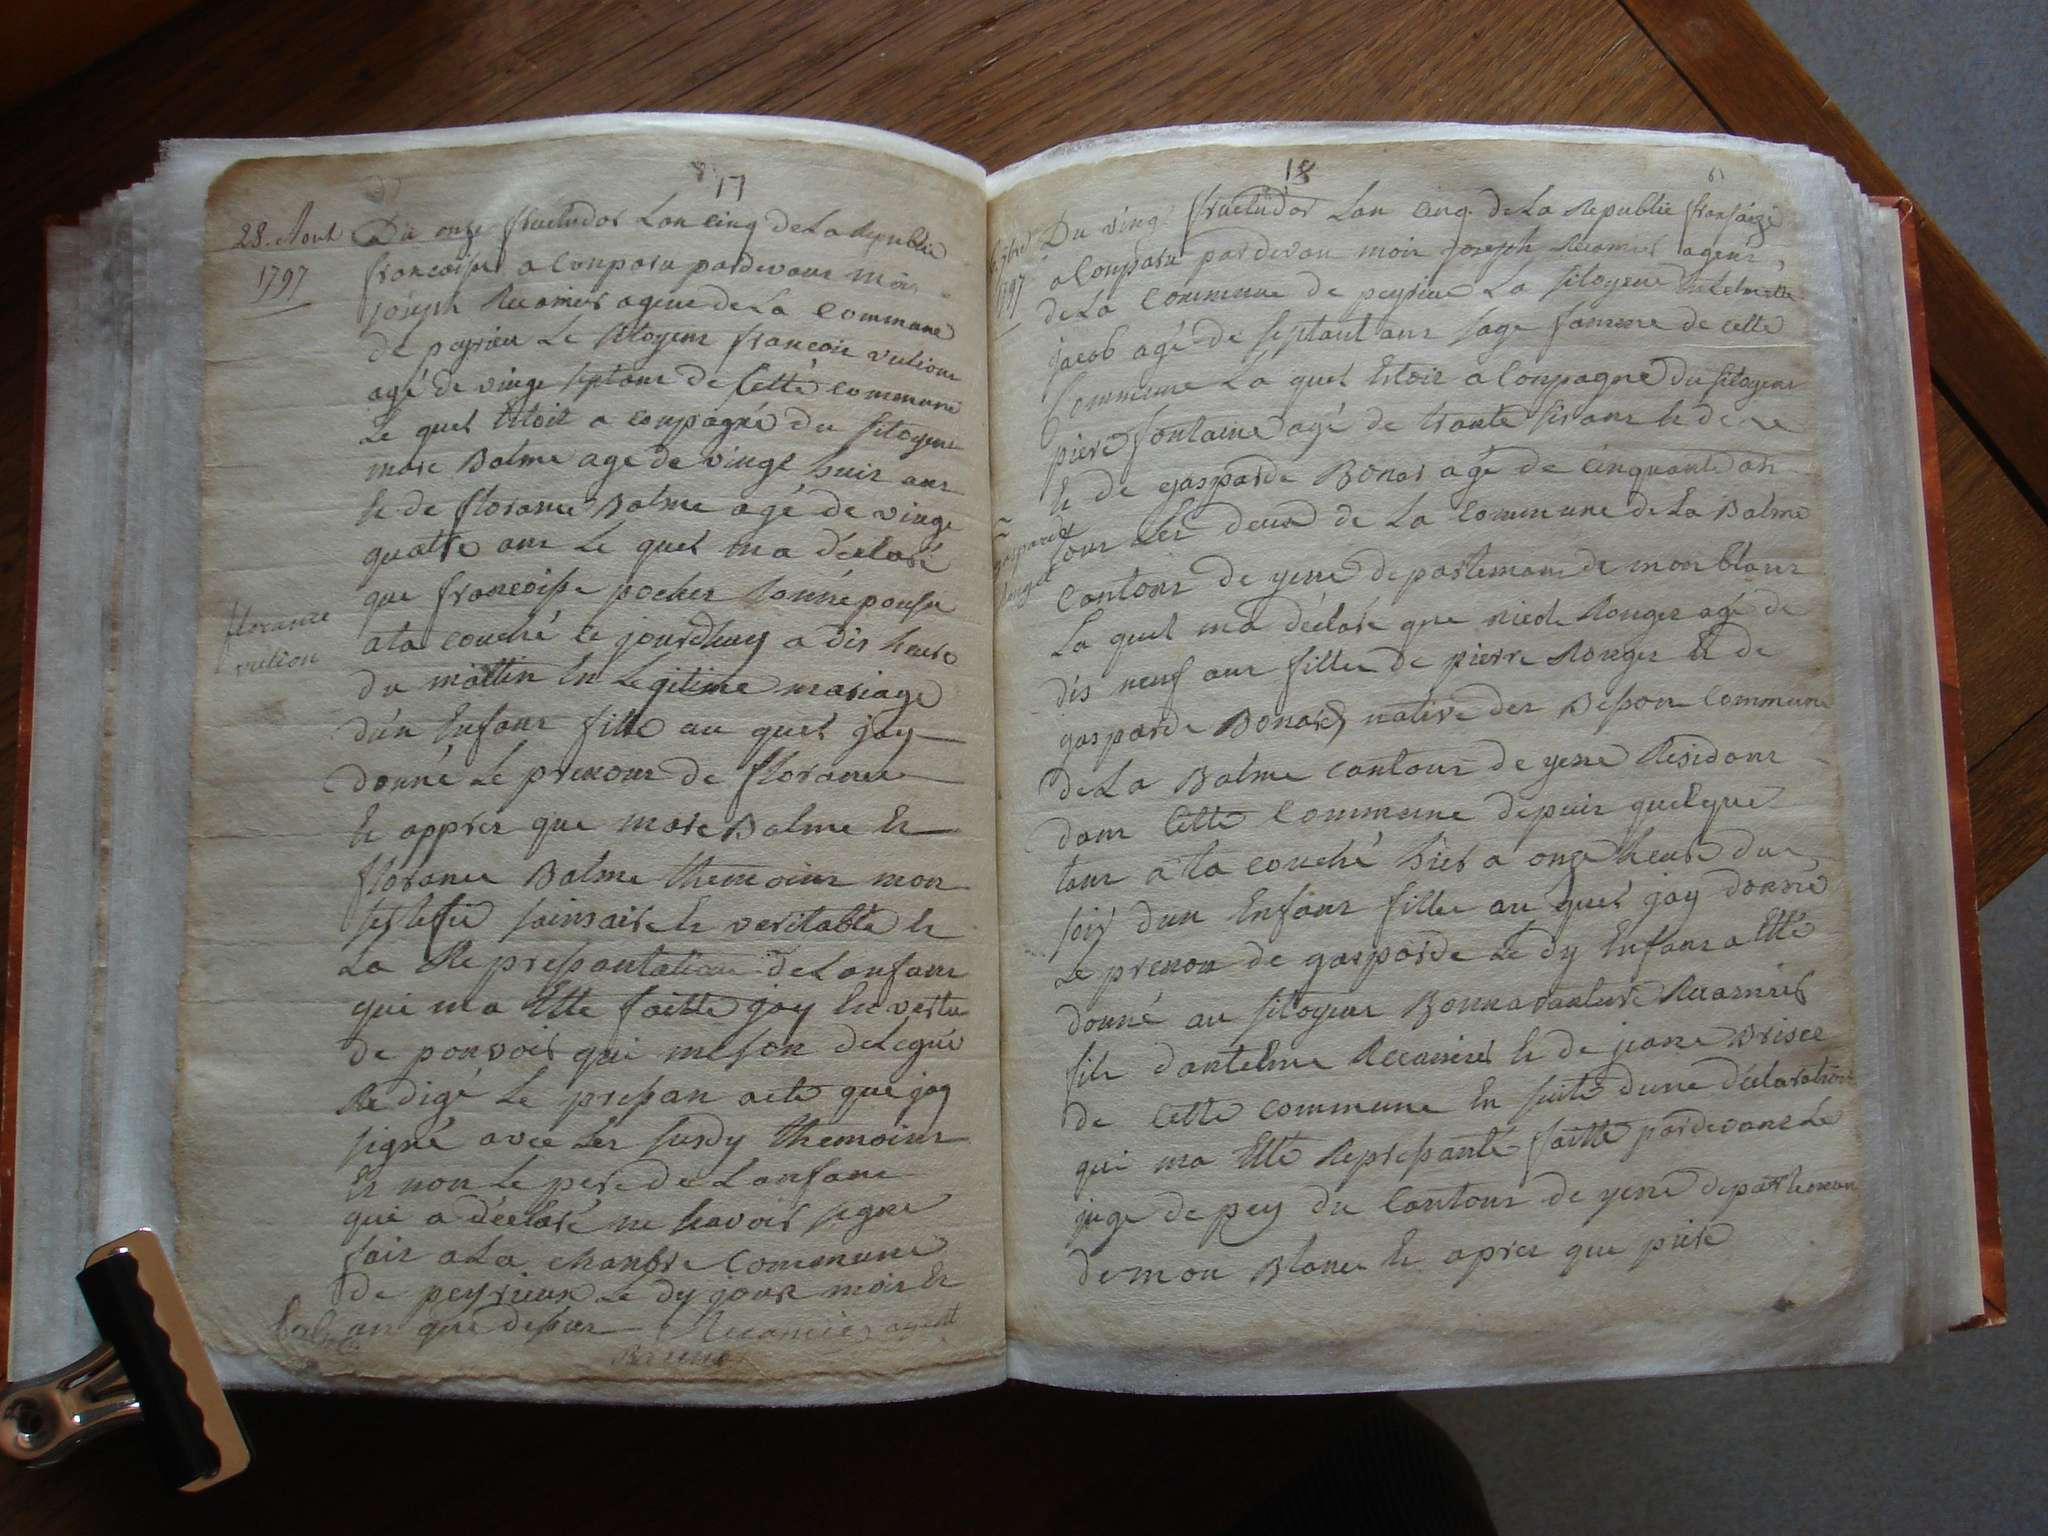 17
28. Aout
1797
Du onze fructudor Lan cinq de La Republie
francoise a Conparu pardevant moi
joseph Recamier agene de La Commune
de peyrieu Le sitoyens francois vulions
agé de vingt septans de Cette commune
Le quel Estoit a conpagné du sitoyens
marc Balme age de vingt huis ans
Et de florance Balme agé de vingt
quatre ans Le quel ma déclaré
que francoisse pochet
florance
vulion
ata couché ce jourdhuy a dis heure
du mattin En Legitime mariage
d'un Enfans fille au quel jay
donné Le prenons de florance
Et appres que marc Balme Et
florance Balme themoins mon
sertefié sainsaire Et veritable Et
La Represantation de Lanfans
qui ma Etté faitte jay En vertu
de pouvoir qui me son delegué
Redigé Le presan acte que jay
signé avec Les susdy themoins
Et non Le pere de Lanfans
qui a déclaré ne savoir signe
fait a La chambre Commune
de peyrieux Le dy jour mois Et
an que desus Recamier agent
18
1797
Du vingt fructudor Lan cinq de La Republie fransaize
a Conparu pardevan moi joseph Recamier agens
de La Commune de peyrieu La sitoyene
jacob agé de septant ans sage famme de cette
Commune La quel Estoit a Conpagné du sitoyens
piere fontaine agé de trante sis ans Et de
Et de gasparde Bonar agé de cinquante ans
tous Les deux de La Commune de La Balme
gasparde
Rouget
Cantons de yene departemans de mon blanc
La quel ma déclaré que nicole Rouger agé de
dis neuf ans fille de pierre Rouger Et de
gasparde Bonard native des Beson Commune
de La Balme cantons de yene Residans
dans Cette Commune depuis quelque
tans a ta couché hier a onze heure du
soir dun Enfans fille au quel jay donné
Le prenon de gasparde Le dy Enfans a Etté
donné au sitoyens Bonnavanture Recamier
fils dantelme Recamier Et de jeane Brisee
de Cette Commune En suite dune déclaration
qui ma Etté Represanté faitte pardevans Le
juge de pey du Cantons de yene departeman
de mon Blanc Et apres que piere